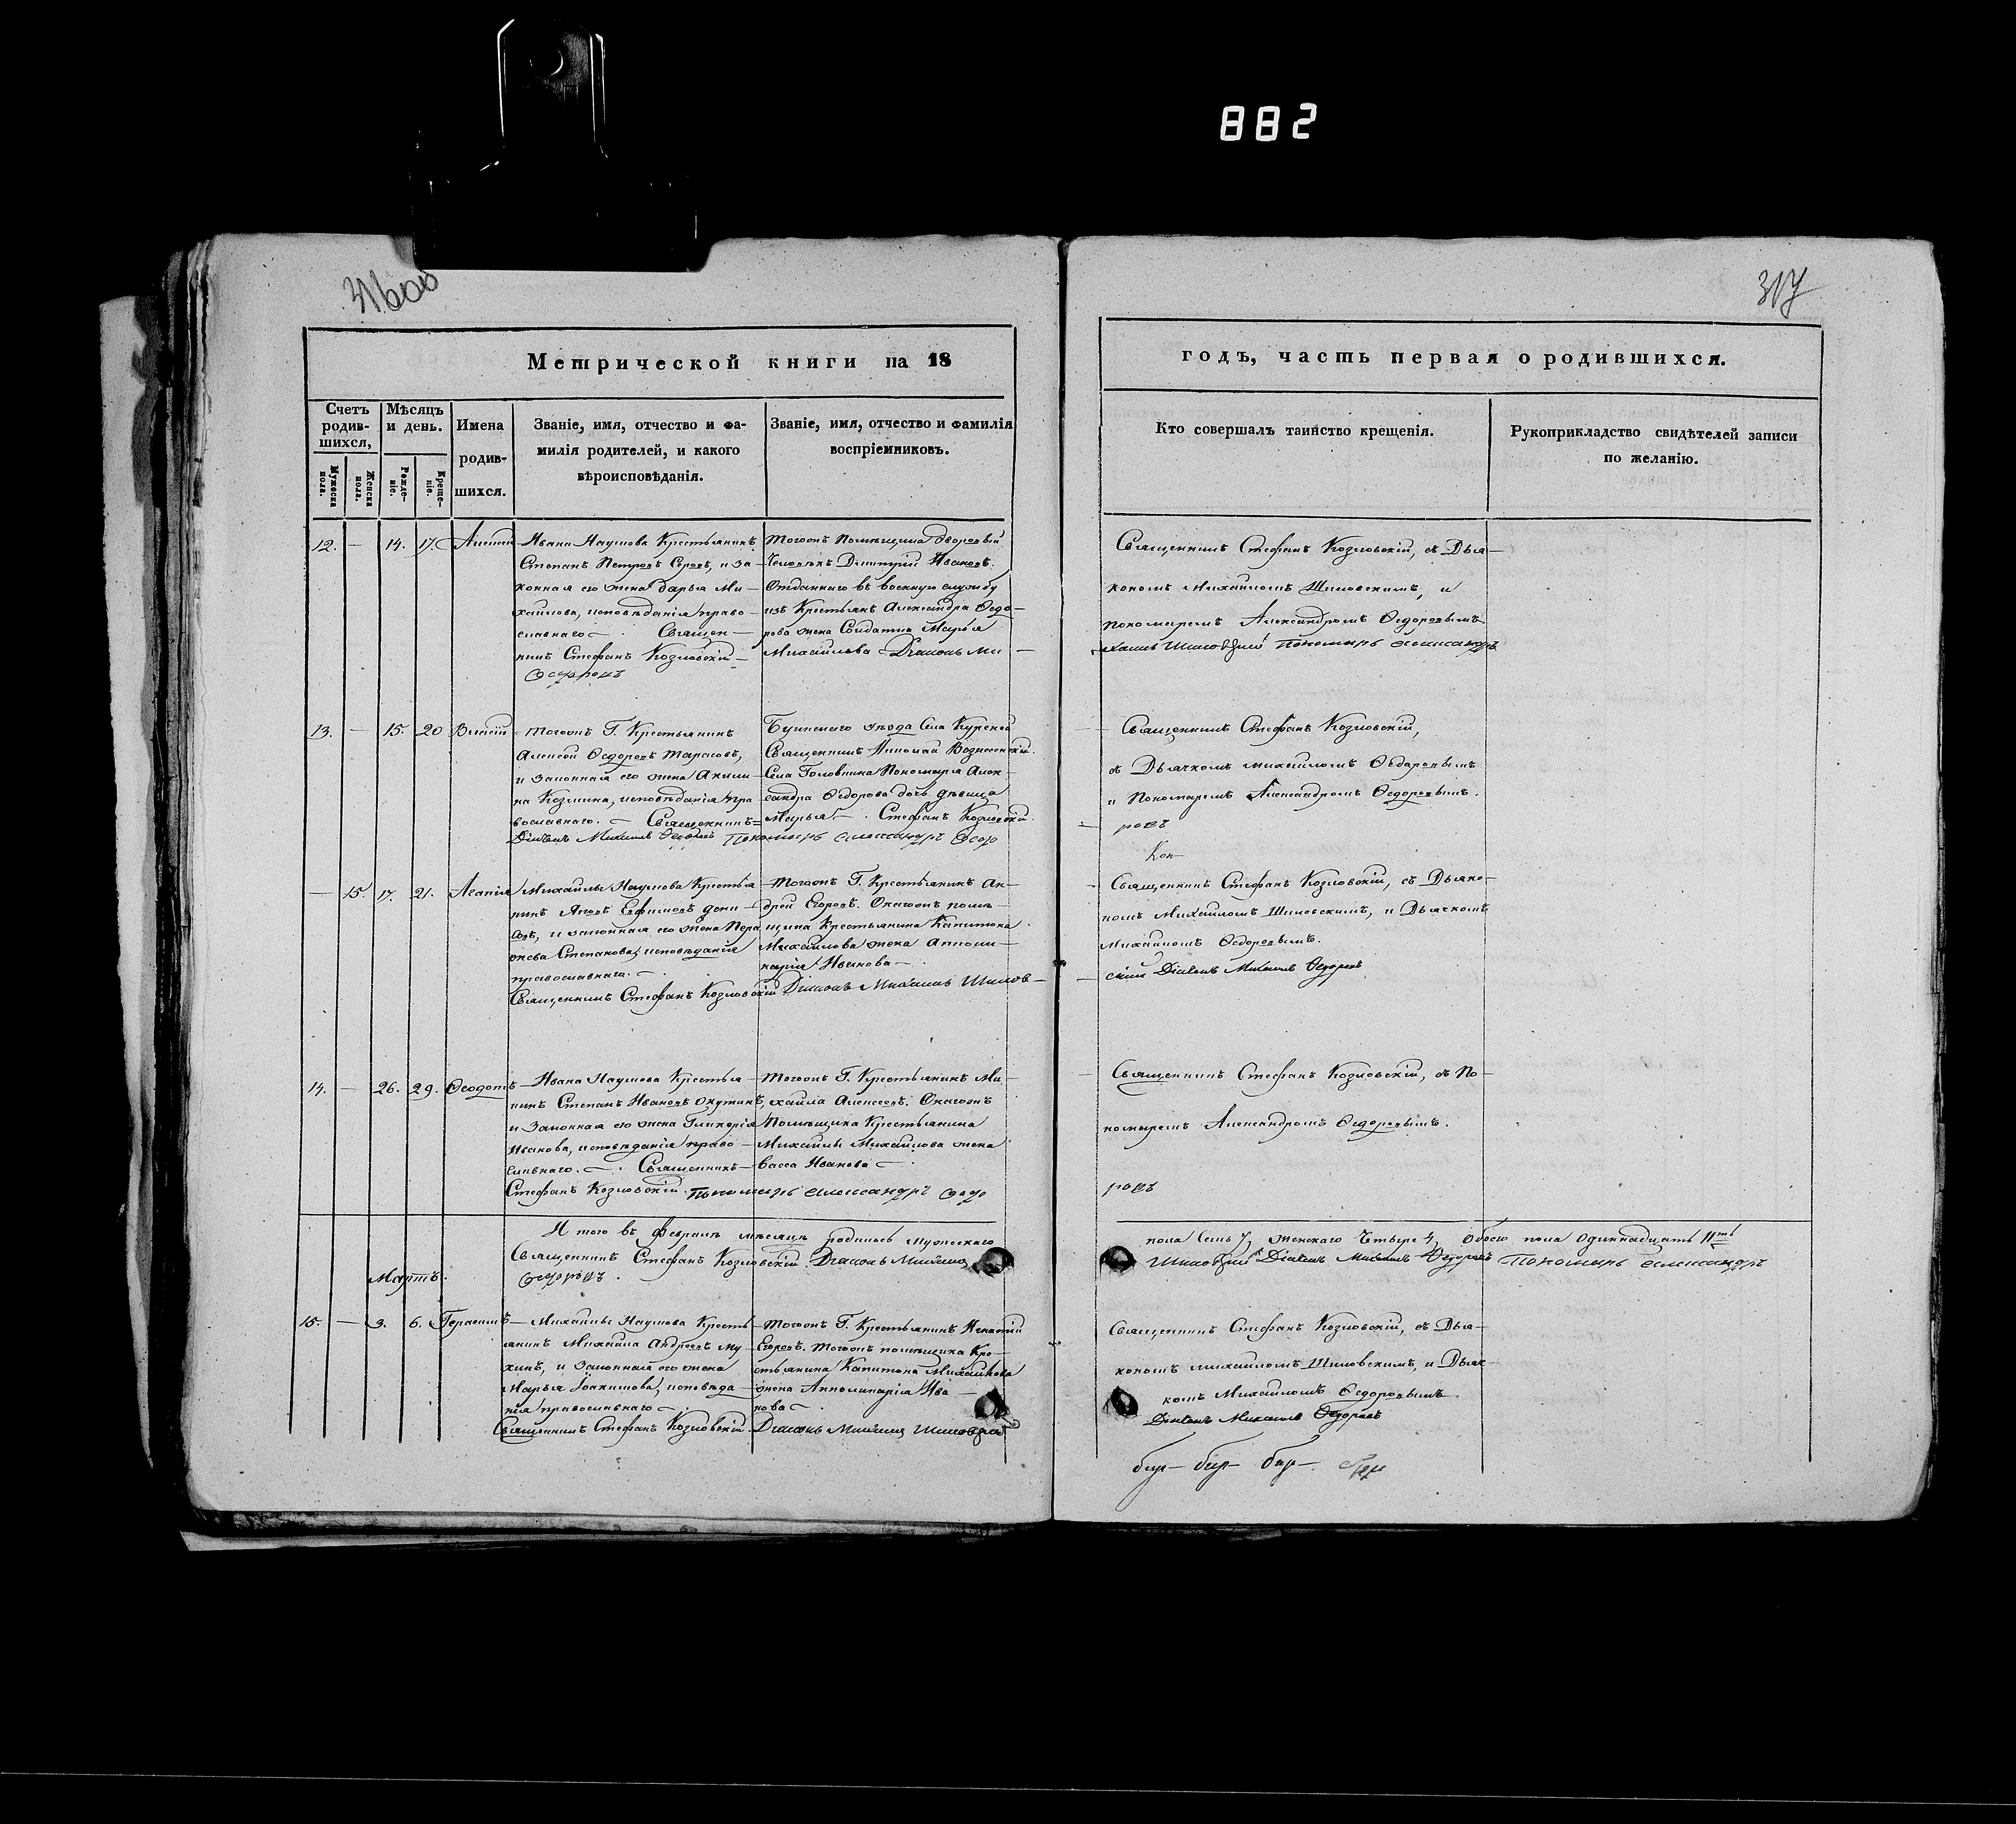 882
317
Метрической книги на 18
годъ, часть первая о родившихся.
Счетъ родившихся,
Мѣсяцъ и день.
Имена родившихся.
Званіе, имя, отчество и фа-
милія родителей, и какого
вѣроисповѣданія.
Званіе, имя, отчество и фамилія
воспріемниковъ.
Кто совершалъ таинство крещенія.
Рукоприкладство свидѣтелей записи
по желанію.
Мужеска пола.
Женска пола.
Рожде-
ніе.
Креще-
ніе.
12. — 14. 17. Алексѣй
Ивана Наумова Крестьянинъ
Степанъ Петровъ Серовъ, и за-
конная его жена Дарья Ми-
хайлова, исповѣданія право-
славнаго. Священ-
никъ Стефанъ Козловскій
Ѳедоровъ
Тогожъ Помѣщика дворовый
Человѣкъ Димитрій Ивановъ.
Отданнаго въ военную службу
изъ Крестьянъ Александра Ѳедо-
рова жена Солдатка Марья
Михайлова Диаконъ Ми-
Священникъ Стефанъ Козловскій, съ Дья-
кономъ Михаиломъ Шиловскимъ, и
пономаремъ Александромъ Ѳедоровымъ
хаилъ Шиловскій Пономарь Александръ
13. — 15. 20 Власій
Тогожъ Г. Крестьянинъ
Алексѣй Ѳедоровъ Тарасовъ,
и законная его жена Акили-
на Козмина, исповѣданія пра-
вославнаго. Священникъ
Дьячекъ Михаилъ Ѳедоровъ Пономарь Александръ Ѳедо
Буинскаго уѣзда Села
Священникъ Николай Вознесенскій.
Села Головкина Пономаря Алек-
сандра Ѳедорова дочь дѣвица
Марья. Стефанъ Козловскій
Священникъ Стефанъ Козловскій,
съ Дьячкомъ Михаиломъ Ѳедоровымъ
и Пономаремъ Александромъ Ѳедоровымъ.
ровъ
— 15. 17. 21. Агапія
Михайлы Наумова Крестья
нинъ Яковъ Ефимовъ
и законная его жена
Степанова, исповѣданія
православнаго.
Священникъ Стефанъ Козловскій Диаконъ Михаилъ Шилов-
Тогожъ Г. Крестьянинъ Ан-
дрей Егоровъ. Онагожъ помѣ-
щика Крестьянина Капитона
Михайлова жена Аполи-
нарія Иванова.
Священникъ Стефанъ Козловскій, съ Дьяко-
номъ Михаиломъ Шиловскимъ, и Дьячкомъ
Михаиломъ Ѳедоровымъ.
скій Дьячекъ Михаилъ Ѳедоровъ
14. — 26. 29. Ѳеодотъ
Ивана Наумова Крестья
нинъ Степанъ Ивановъ
и Законная его жена Гликерія
Иванова, исповѣданія право-
славнаго. Священникъ
Стефанъ Козловскій. Пономарь Александръ Ѳедо
Тогожъ Г. Крестьянинъ Ми-
хайла Алексеевъ. Онагожъ
Помѣщика Крестьянина
Михайлы Михайлова жена
Васса Иванова
Священникъ Стефанъ Козловскій, съ По-
номаремъ Александромъ Ѳедоровымъ.
ровъ
Итого въ Февралѣ мѣсяцѣ родилось мужескаго
пола Семь 7, женскаго Четыре 4, Обоего пола Одиннадцать 11ть
Священникъ Стефанъ Козловскій. Диаконъ Михаилъ
Шиловскій Дьячекъ Михаилъ Ѳедоровъ Пономарь Александръ
Ѳедоровъ.
Мартъ.
15. — 3. 6. Герасимъ
Михайлы Наумова Кресть
янинъ Михайла Андреевъ Му-
хинъ, и Законная его жена
Марья Іоакимова, исповѣда-
нія православнаго.
Священникъ Стефанъ Козловскій Диаконъ Михаилъ Шиловскій
Тогожъ Г. Крестьянинъ Игнатій
Егоровъ. Тогожъ помѣщика Кре-
стьянина Капитона Михайлова
жена Апполинарія Ива-
нова.
Священникъ Стефанъ Козловскій, съ Дья-
кономъ Михаиломъ Шиловскимъ, и Дьяч-
комъ Михаиломъ Ѳедоровымъ.
Дьячекъ Михаилъ Ѳедоровъ